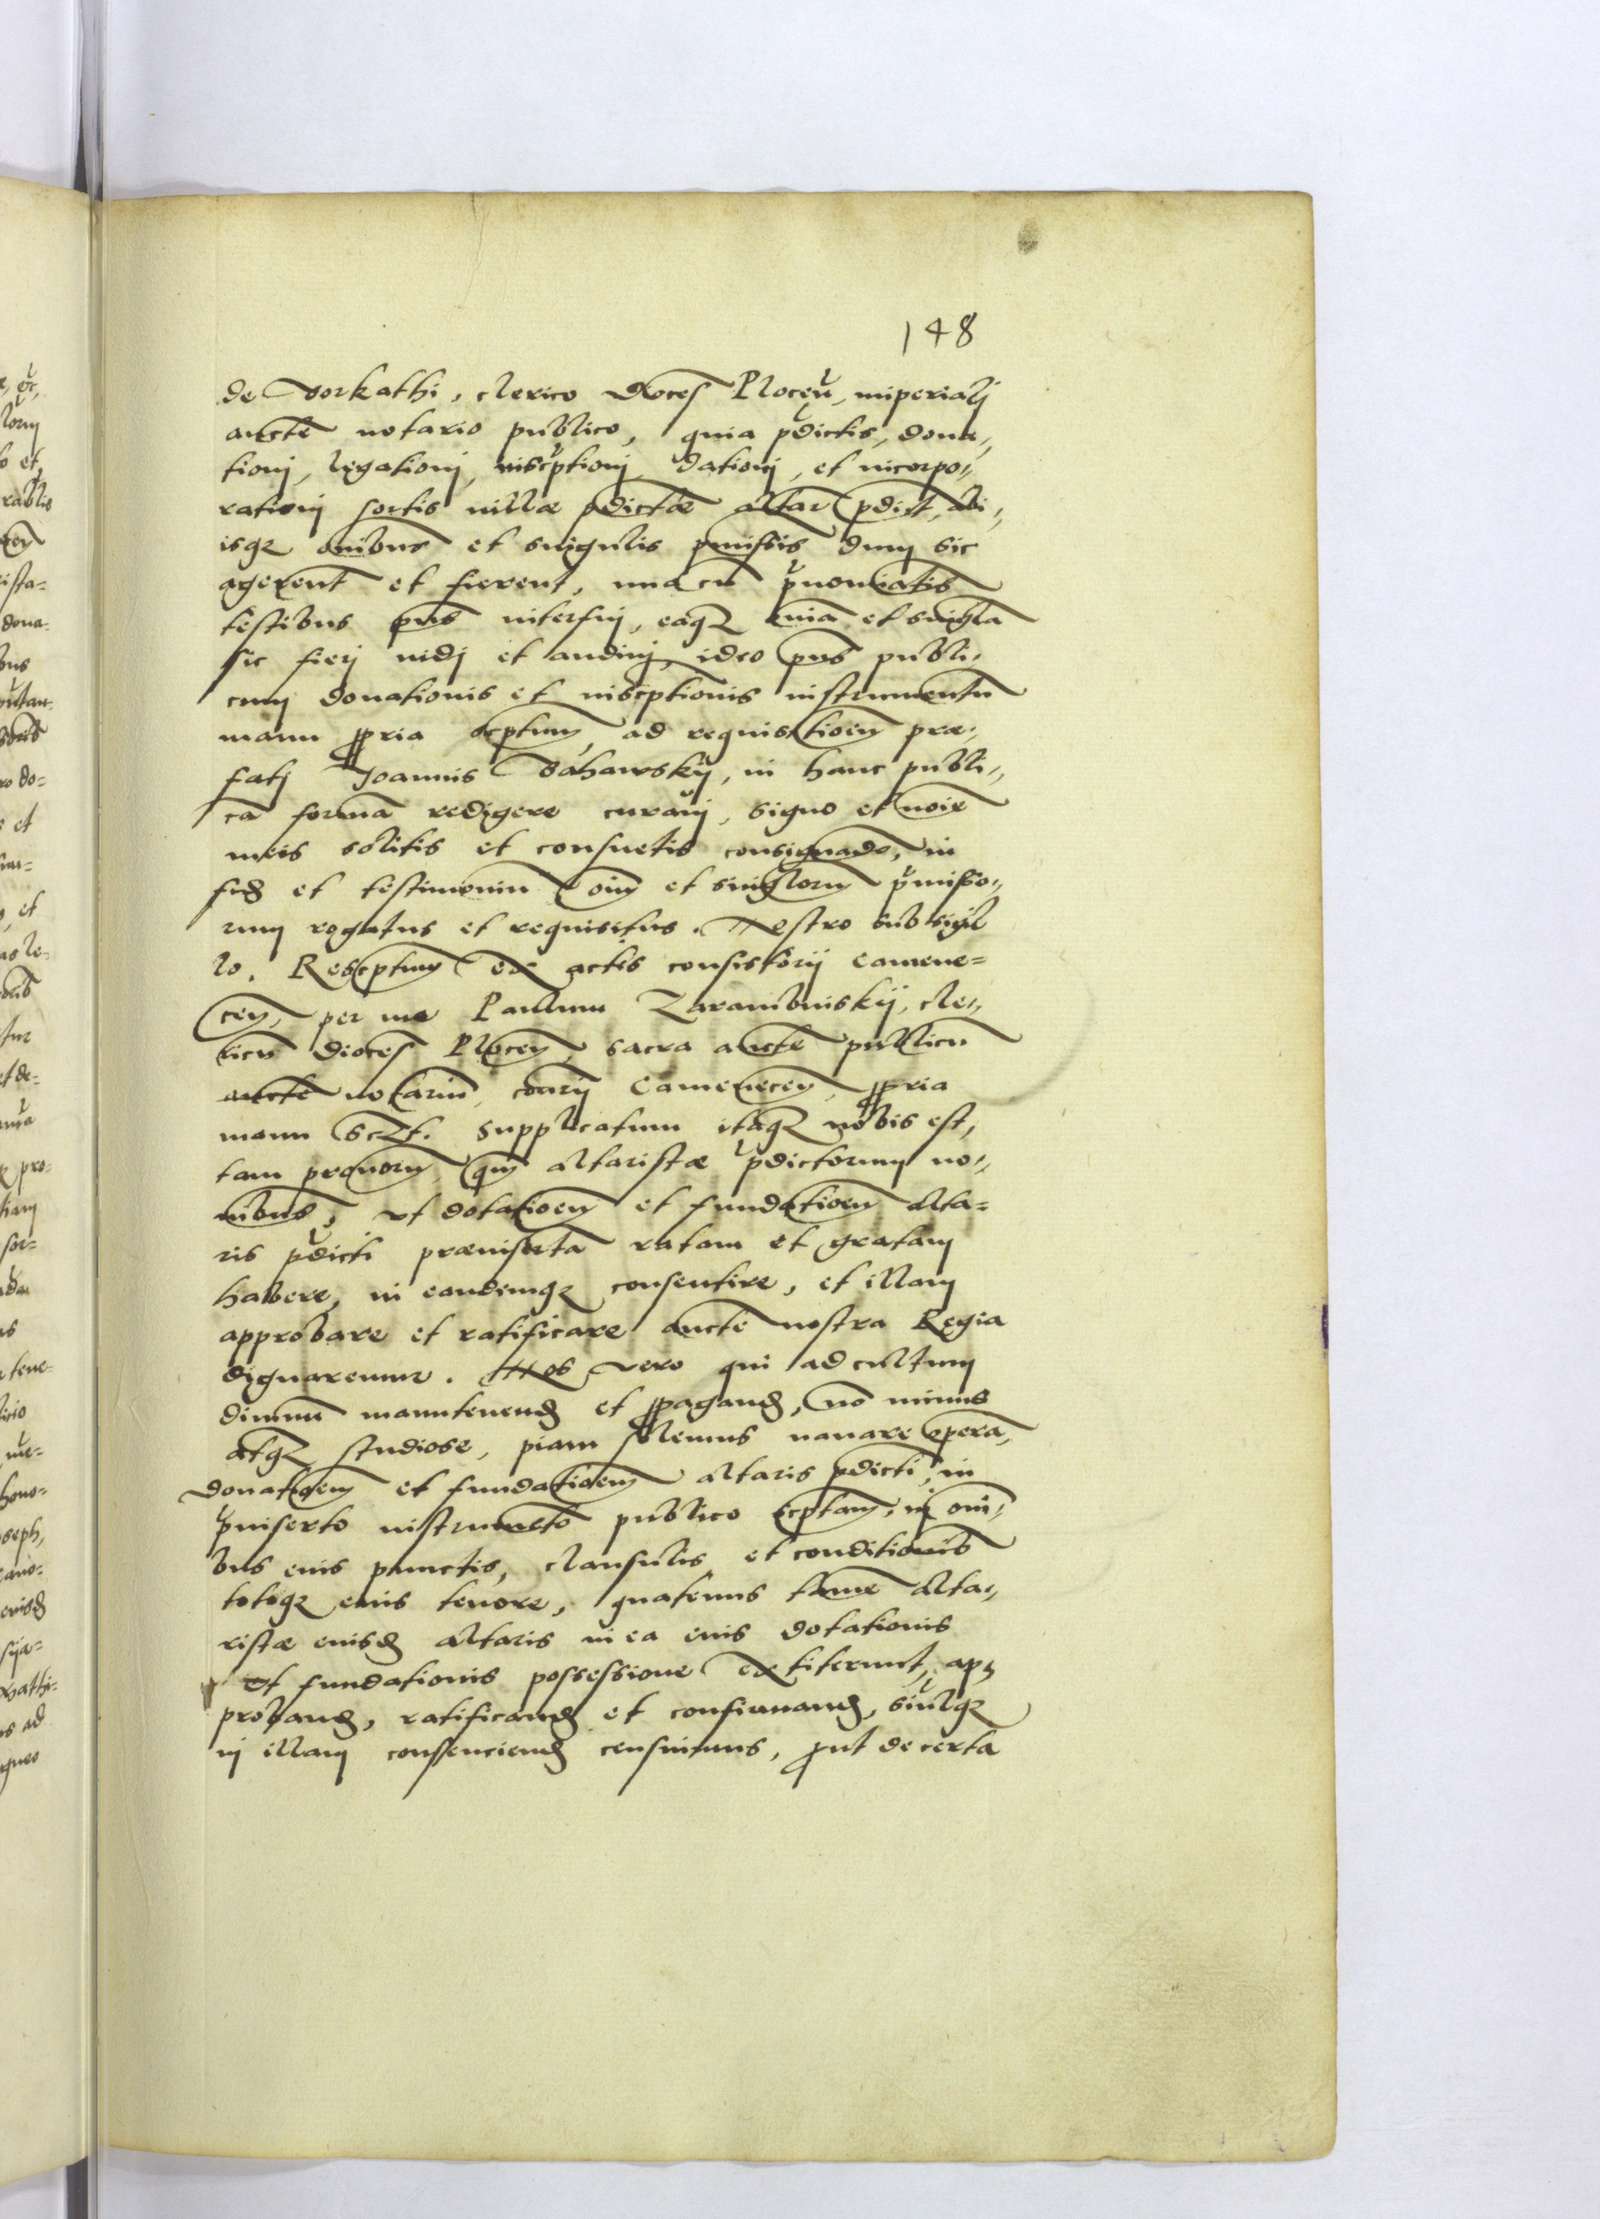 148
de Vorkathi, clerico dioces Plocen, imperialj
aucte notario publico, quia pdictis, dona,,
tionj, legationj, inscptionj dationj, et incorpo,,
rationj sortis villæ pdictæ altar pdict, ali,,
isq omibus et singulis pmissis dum sic
agerent et fierent, una cu pnomiatis
testibus pns interfuj, eaq omia et singla
sic fierj vidj et audivj, ideo pns publi,,
cum donationis et inscptionis instrumentu
manu ppria scptum, ad requisitioem præ,,
fatj Joannis Vahawskij, in hanc publi,,
ca forma redigere curavj, signo et noie
meis solitis et consuetis consignado, in
fid et testimoniu oim et singlorum pmisso,,
rum rogatus et requisitus. Nostro sub sigil
lo. Rescptum ex actis consistorij Camene=
cen, per me Paulum Zarambinskij, cle,,
ricu dioces Plocen, sacra aucte publicu
aucte notariu, coarij Camenecen, ppria
manu sczt. Supplicatum itaq nobis est,
tam pronorum qm altaristæ pdictorum no,,
inibus, ut dotatioem et fundatioem alta=
ris pdicti præinserta ratam et gratam
habere, in eandemq consentire, et illam
approbare et ratificare aucte nostra Regia
dignaremur. Nos vero qui ad cultum
divinu manutenend et ppagand, no minus
atq studiose, piam solemus navare opera,
donatioem et fundatioem altaris pdicti, in
pinserto instrumeto publico scptam, in omi,,
bus eius punctis, clausulis et conditionib
totoq eius tenore, quatenus tame alta,,
ristæ eiusd altaris in ea eius dotationis
et fundationis possessione extiterunt, ap,,
proband, ratificand et confirmand, simulq
in illam consenciend censuimus, prout de certa